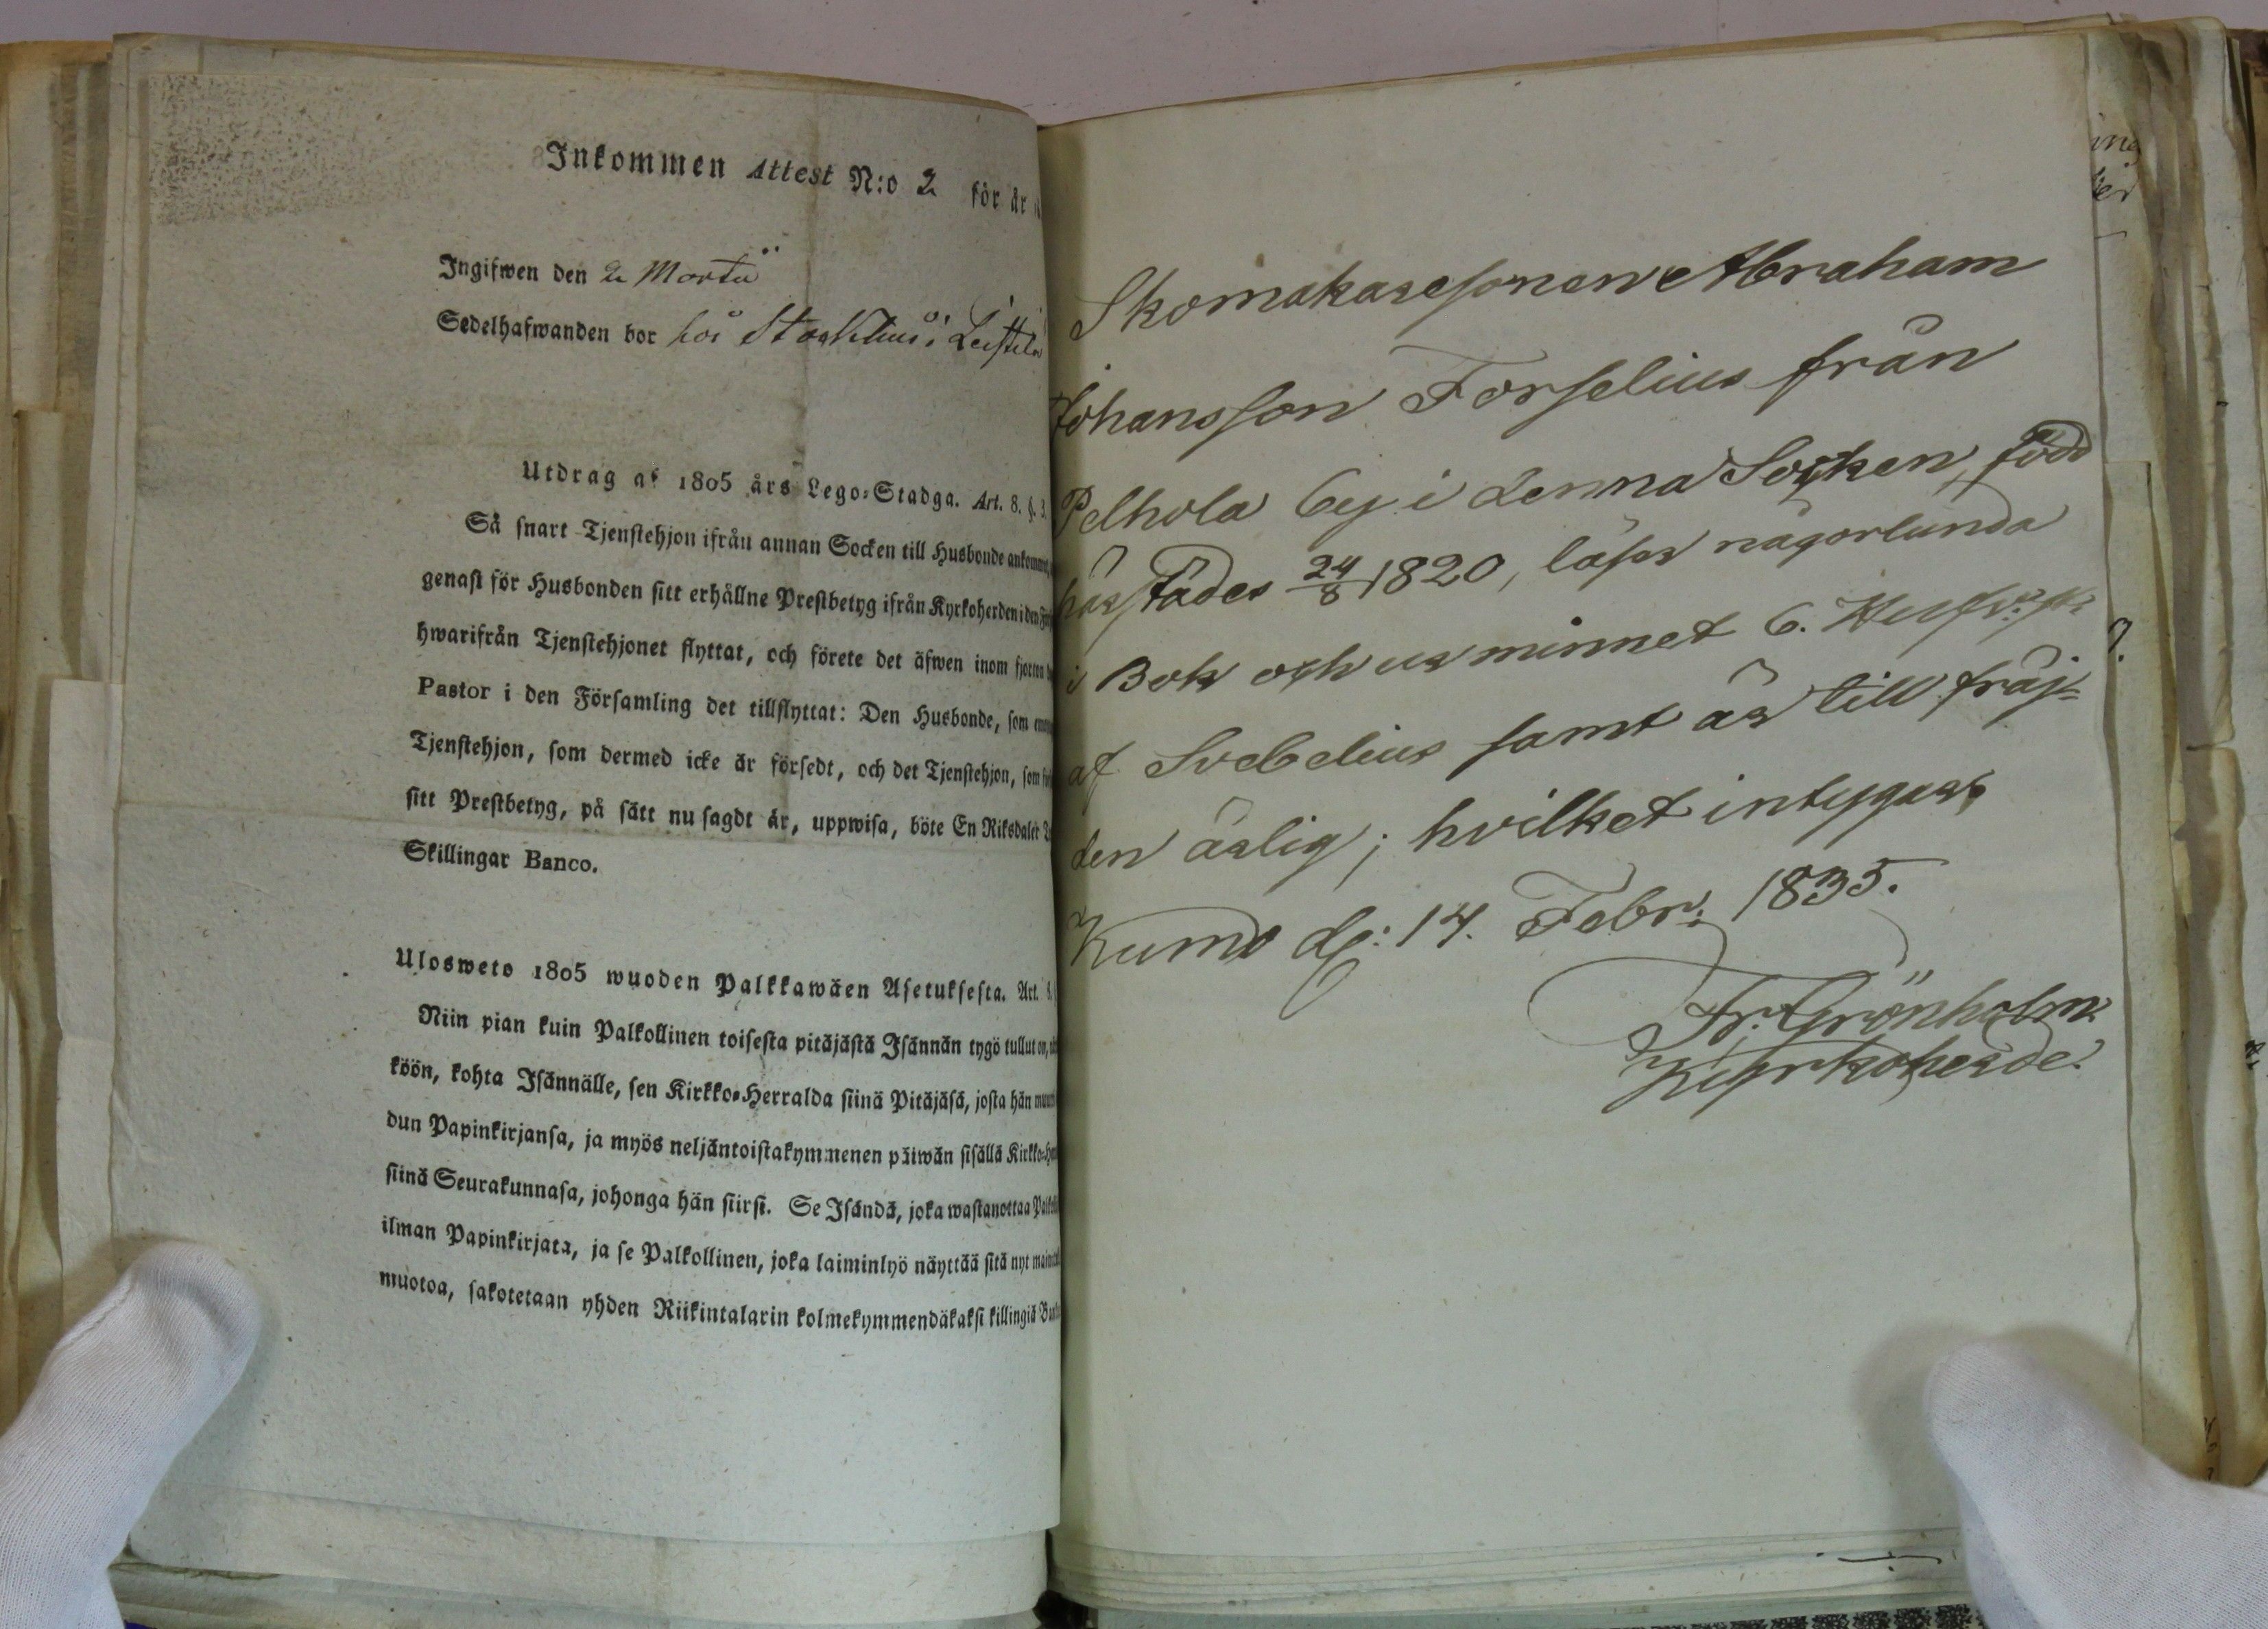 Inkommen Attest N:o 2 för år
Ingifwen den 2 Martii
Sedelhafwanden bor hos i Leistila
Utdrag af 1805 års Lego-Stadga. Art. 8. §. 3.
Så snart Tjenstehjon ifrån annan Socken till Husbonde
genast för Husbonden sitt erhållne Prestbetyg ifrån Kyrkoherden i den
hwarifrån Tjenstehjonet flyttat, och förete det äfwen inom fjorton
Pastor i den Församling det tillflyttat: Den Husbonde, som
Tjenstehjon, som dermed icke är försedt, och det Tjenstehjon, som
sitt Prestbetyg, på sätt nu sagdt är, uppwisa, böte En Riksdaler
Skillingar Banco.
Ulosweto 1805 wuoden Palkkawäen Asetuksesta. Art. 8.
Niin pian kuin Palkollinen toisesta pitäjästä Isännän tygö tullut on,
köön, kohta Isännälle, sen Kirkko-Herralda siinä Pitäjäsä, josta hän
dun Papinkirjansa, ja myös neljäntoistakymmenen päiwän sisällä
siinä Seurakunnasa, johonga hän siirsi. Se Isändä, joka wastanottaa
ilman Papinkirjata, ja se Palkollinen, joka laiminlyö näyttää sitä nyt
muotoa, sakotetaan yhden Riikintalarin kolmekymmendäkaksi killingiä
Skomakaresonen Abraham
Johansson Forselius från
Pelhola by i denna Socken, född
härstädes 24/8 1820, läser någorlunda
i Bok och ur minnet
af Svebelius samt är till fräj-
den ärlig; hvilket intygas,
Kumo d: 14. Febr: 1835.
Fr: Grönholm
Kyrkoherde.